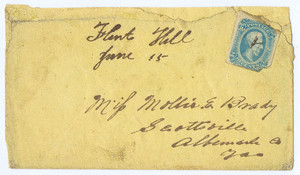 Flint Hill
June 15
Miss Mollie E. Brady
Scottsville
Albemarle Co
Va